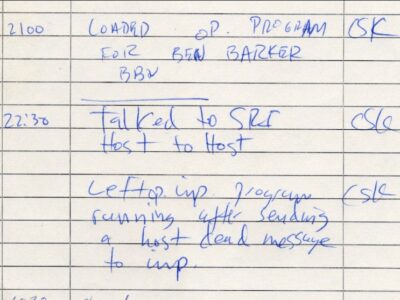 2100 LOADED OP. PROGRAM CSK
FOR BEN BARKER
BBN
22:30 Talked to SRI CSK
Host to Host
Left op imp. program CSK
running after sending
a host dead message
to imp.